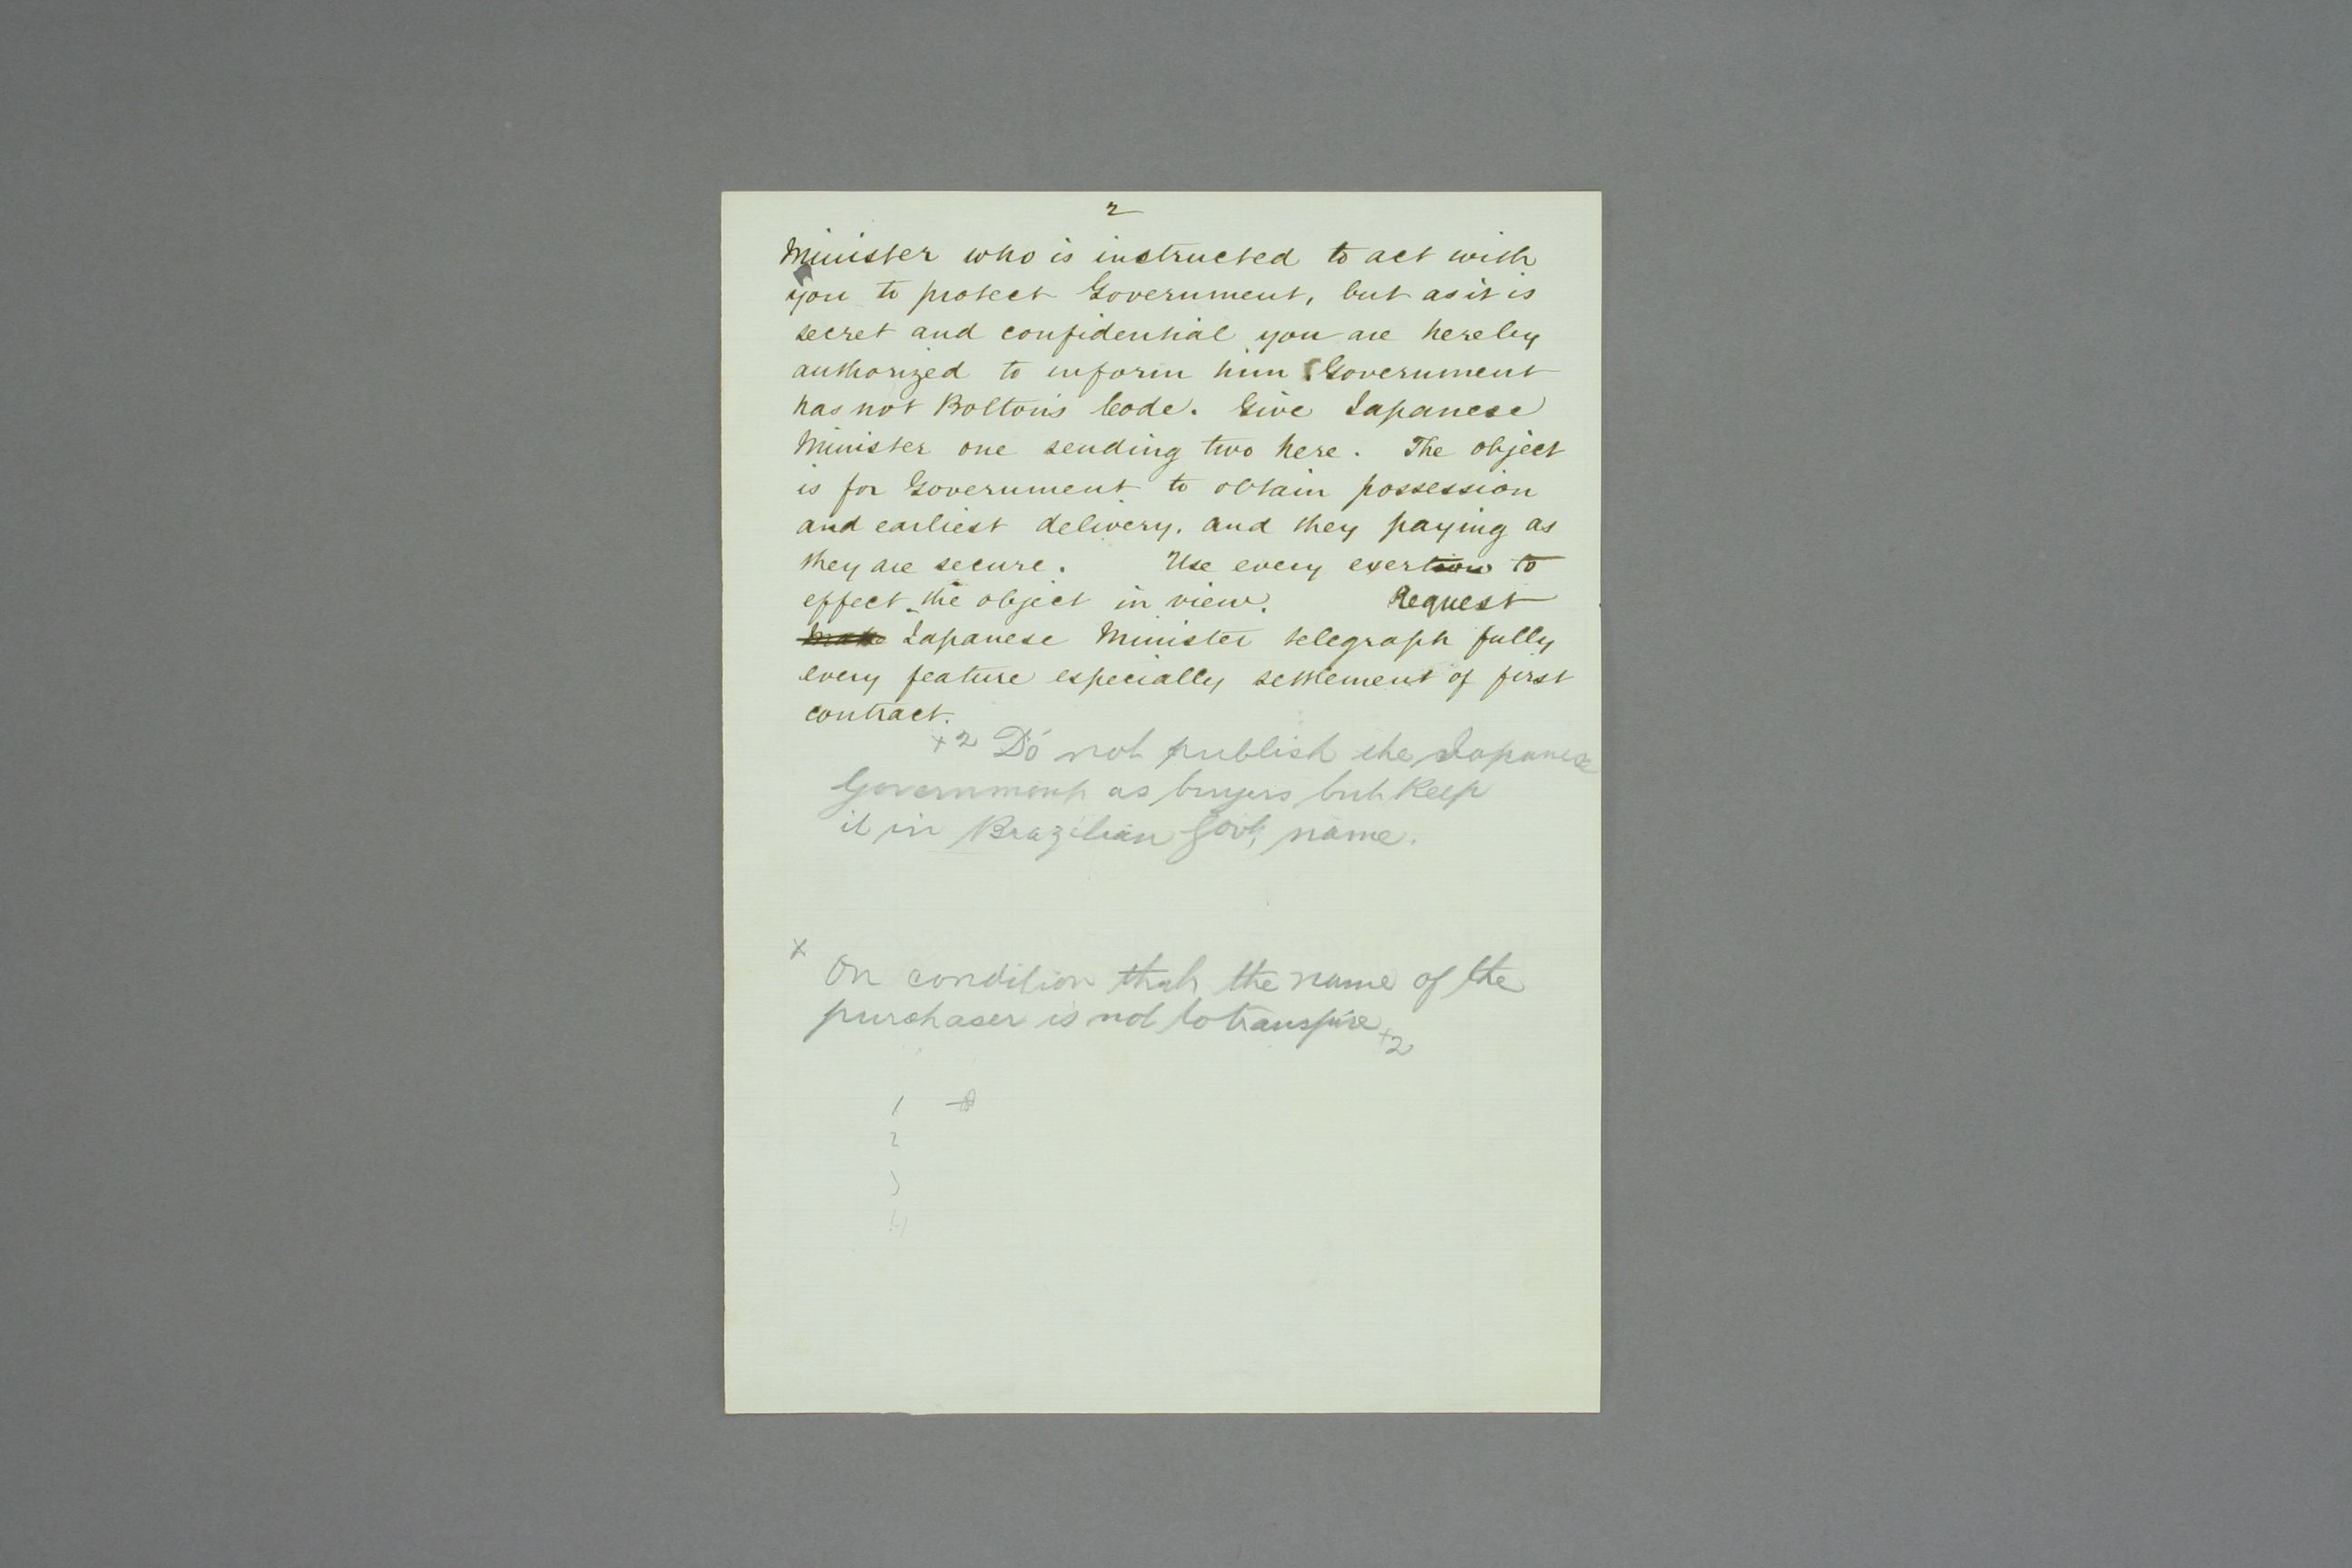 2
Minister who is instructed to act with
you to protect Government, but as it is
secret and confidential you are hereby
authorized to inform him Government
has not Bolton's Code. Give Japanese
Minister one sending two here. The object
is for Government to obtain possession
and earliest delivery, and they paying as
they are secure. Use every exertion to
effect the object in view. Request
Japanese Minister telegraph fully
every feature especially settlement of first
contract.
+2 Do not publish the Japanese
Government as buyers but keep
it in Brazilian Govt, name.
x
On condition that the name of the
purchaser is not to transpire +2
1
2
3
4